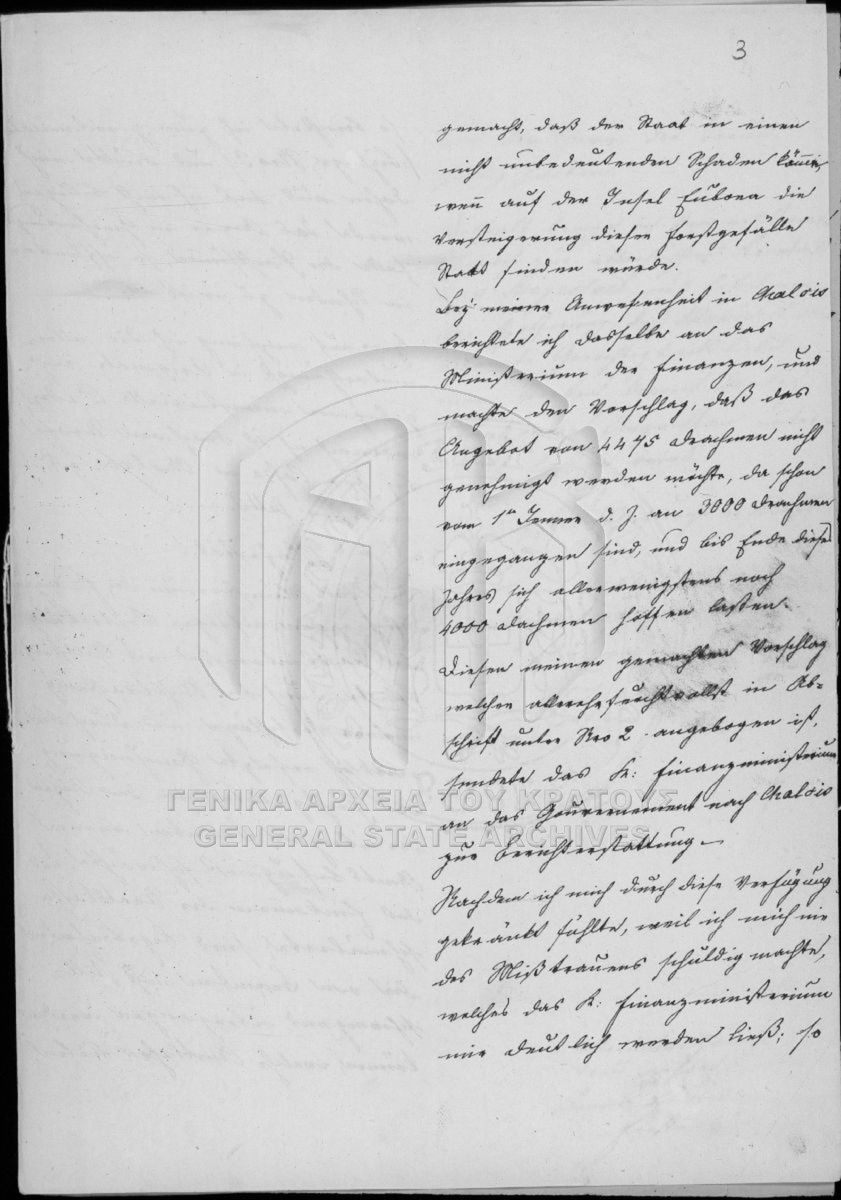 3
gemacht, daß der Staat in einen
nicht unbedeutenden Schaden käme,
wenn auf der Insel Euboea die
Versteigerung dieser Forstgefälle
Statt finden würde.
Bey meiner Anwesenheit in Chalcis
berichtete ich dasselbe an das
Ministerium der Finanzen, und
machte den Vorschlag, daß das
Angebot von 4475 Drachmen nicht
genehmigt werden möchte, da schon
vom 1ten Jenner d. J. an 3000 Drachmen
eingegangen sind, und bis Ende dieses
Jahres sich allerwenigstens noch
4000 Dachmen hoffen lassen.
Diesen meinen gemachten Vorschlag
welcher allerehrfurchtvollst in Ab-
schrift unter Nro 2 angebogen ist,
sendete das K: Finanzministerium
an das Gouvernement nach Chalcis
zur Berichterstattung.
Nachdem ich mich durch diese Verfügung
gekränkt fühlte, weil ich mich nie
des Mißtrauens schuldig machte,
welches das K: Finanzministerium
mir deutlich werden ließ; so
ΓΕΝΙΚΑ ΑΡΧΕΙΑ ΤΟΥ ΚΡΑΤΟΥΣ
GENERAL STATE ARCHIVES